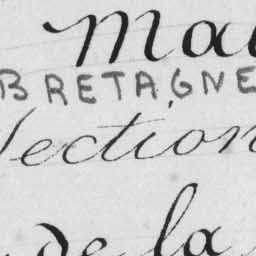 Mai
BRETAGNE
Section
de la